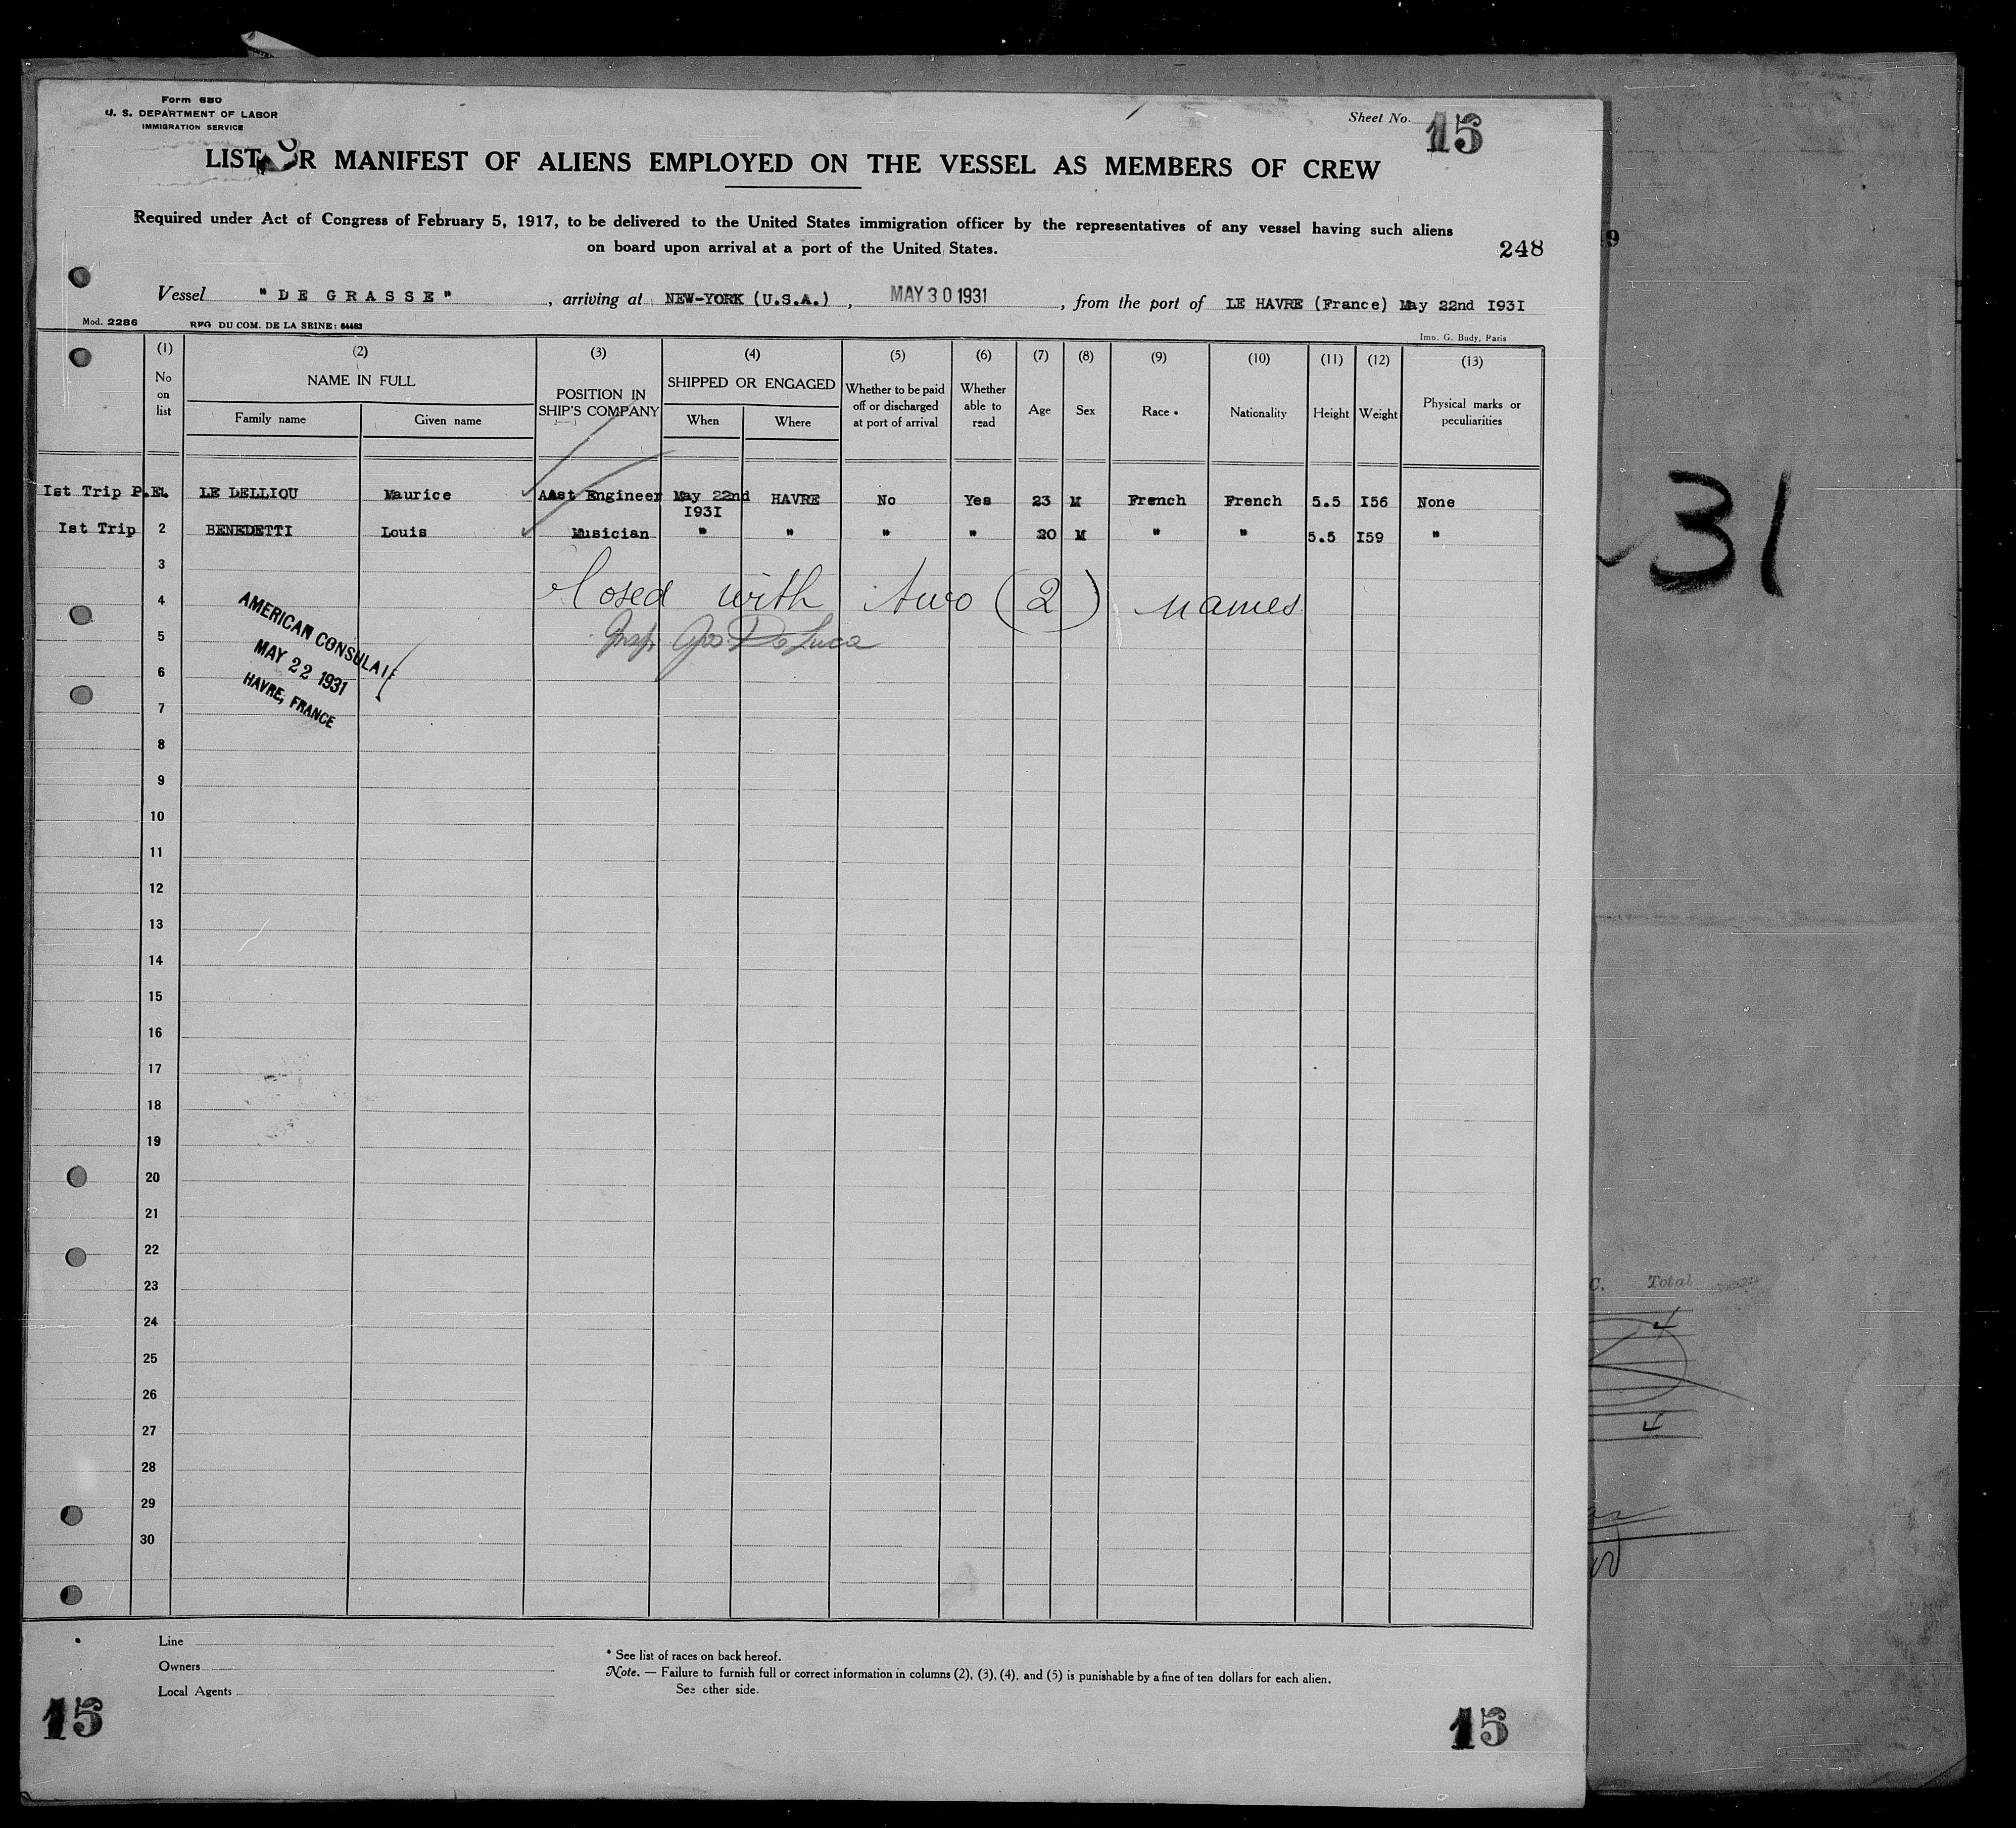 Form 680
U. S. DEPARTMENT OF LABOR
IMMIGRATION SERVICE
Sheet No. 15
LIST OR MANIFEST OF ALIENS EMPLOYED ON THE VESSEL AS MEMBERS OF CREW
Required under Act of Congress of February 5, 1917, to be delivered to the United States immigration officer by the representatives of any vessel having such aliens
on board upon arrival at a port of the United States.
248
Vessel "DE GRASSE", arriving at NEW-YORK (U.S.A.), MAY 30 1931, from the port of LE HAVRE (France) May 22nd I93I
Mod. 2286 REG DU COM. DE LA SEINE: 64483
Imp. G. Budy, Paris
(1) (2) (3) (4) (5) (6) (7) (8) (9) (10) (11) (12) (13)
No on list
NAME IN FULL
Family name Given name
POSITION IN SHIP'S COMPANY
SHIPPED OR ENGAGED
When Where
Whether to be paid off or discharged at port of arrival
Whether able to read
Age Sex Race * Nationality Height Weight
Physical marks or peculiarities
Ist Trip P.E. LE DELLIOU Maurice Asst Engineer May 22nd I93I HAVRE No Yes 23 M French French 5.5 I56 None
Ist Trip 2 BENEDETTI Louis Musician " " " " 20 M " " 5.5 I59 "
3
Closed with two (2) names
4
AMERICAN CONSULATE
MAY 22 1931
HAVRE, FRANCE
5
Insp. Jos De Luca
6
7
8
9
10
11
12
13
14
15
16
17
18
19
20
21
22
23
24
25
26
27
28
29
30
Line
Owners
Local Agents
* See list of races on back hereof.
Note. — Failure to furnish full or correct information in columns (2), (3), (4), and (5) is punishable by a fine of ten dollars for each alien.
See other side.
15
15
9
31
C. Total
4
4